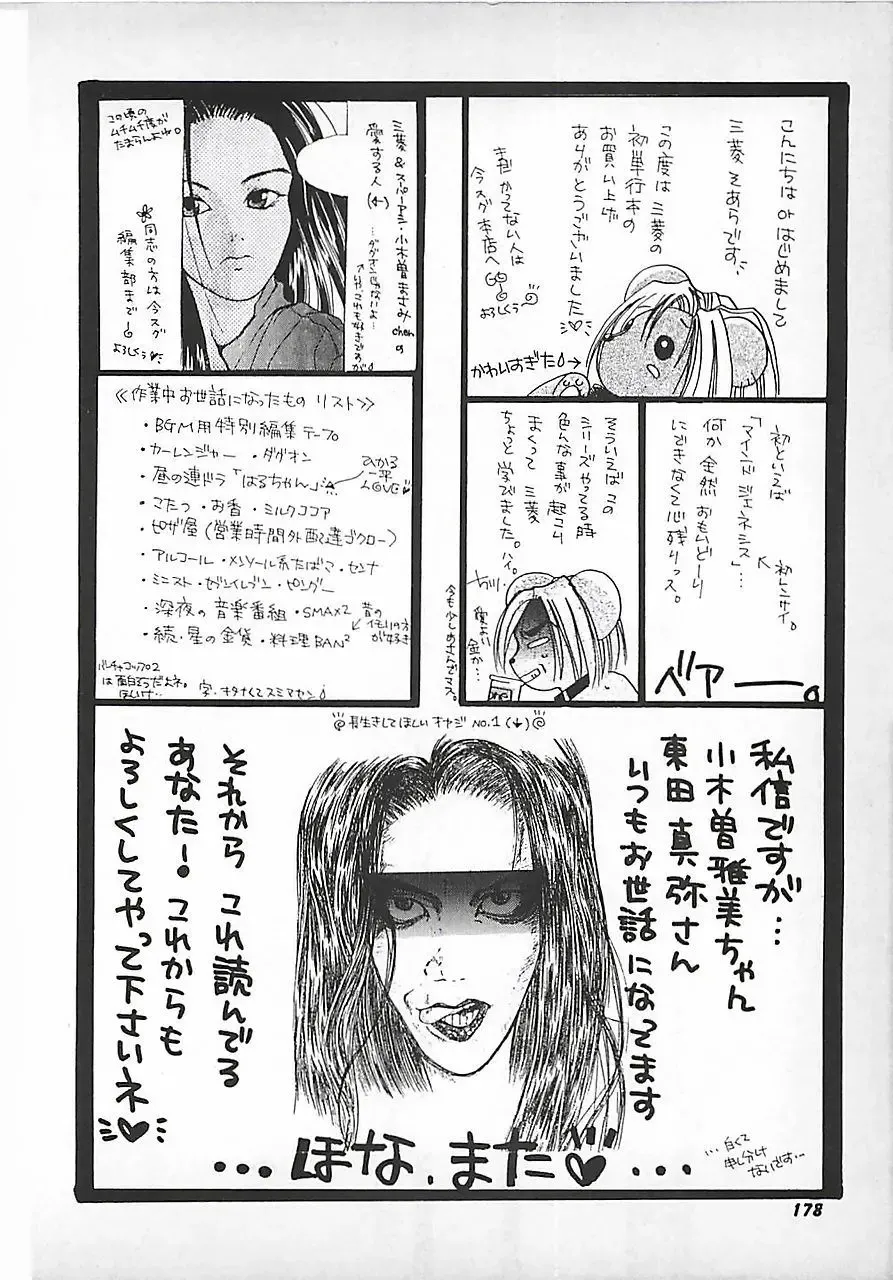 こんにちは or はじめまして
三菱 そあらです
この度は 三菱の
初単行本の
お買い上げ
ありがとうございました
まだ かってない人は
今スグ 本店へ GO
よろしくぅ
かわいすぎた
初といえば
「マインド ジェネシス」…
初レンサイ。
何か全然 おもいどーり
にできなくて心残りっス。
ベアー。
そういえば この
シリーズやってる時
色んな事が起こり
まくって 三菱
ちょっと学びました。ハイ。
今も少しめさんでマス。
三菱&スパーアシ・小木曽まさみchanの
愛する人(←)
…ダグオンじゃないよ…
この頃の
ムチムチ度が
たまらんよね。
同志の方は今スグ
編集部まで
よろしくぅ
≪作業中お世話になったもの リスト≫
・BGM用特別編集テープ
・カーレンジャー ・ダグオン
・昼の連ドラ「はるちゃん」
ひかる
一平
LOVE
・こたつ・お香・ミルクココア
・ピザ屋(営業時間外配達ゴクロー)
・アルコール・メンソール系たばこ・センナ
・ミニスト・セブンイレブン・ピングー
・深夜の音楽番組・SMAX2
・続・星の金貨・料理BAN²
昔の
イモリの方
が好き
は面白そうだよネ。
字、キタナくてスミマセン
長生きしてほしいオヤジ NO.1(↓)
私信ですが…
小木曽雅美ちゃん
東田真弥さん
いつもお世話になってます
それから これ読んでる
あなた!これからも
よろしくしてやって下さいネ
…ほな、また…
…白くて
申し分け
ないです…
178